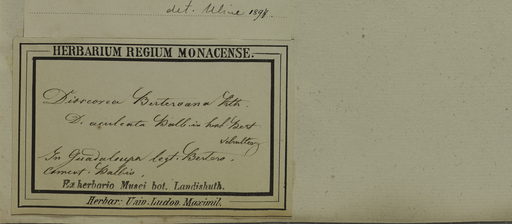 det. Uline 1898.
HERBARIUM REGIUM MONACENSE.
Dioscorea Berteroana Kth
D. aculeata Balb. in herb Bert
In Guadaloupa legt. Bertero.
Balbis.
Ex herbario Musei bot. Landishuth.
Herbar. Univ. Ludov. Maximil.